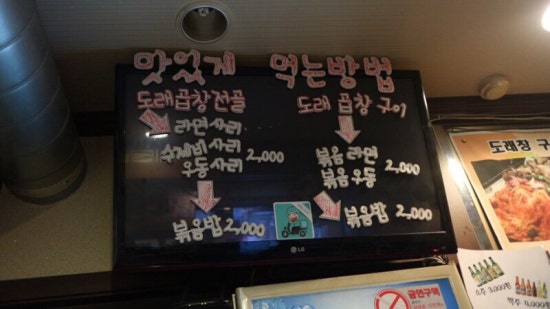 맛있게 먹는방법
도래곱창전골
라면사리
수제비사리
우동사리
2,000
볶음밥 2,000
도래 곱창 구이
볶음 라면
볶음 우동
2,000
볶음밥 2,000
LG
도래창 구
소주 3,000원
맥주 4,000원
금연구역